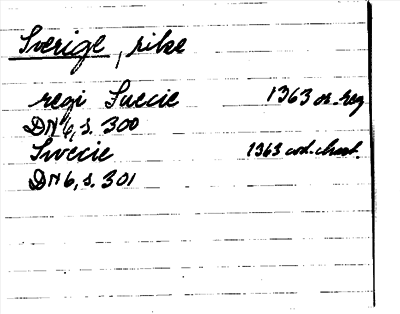 Sverige, rike
regi Suecie 1363 or. reg
DN 6, s. 300
Swecie 1363 avd. chart.
DN 6, s. 301